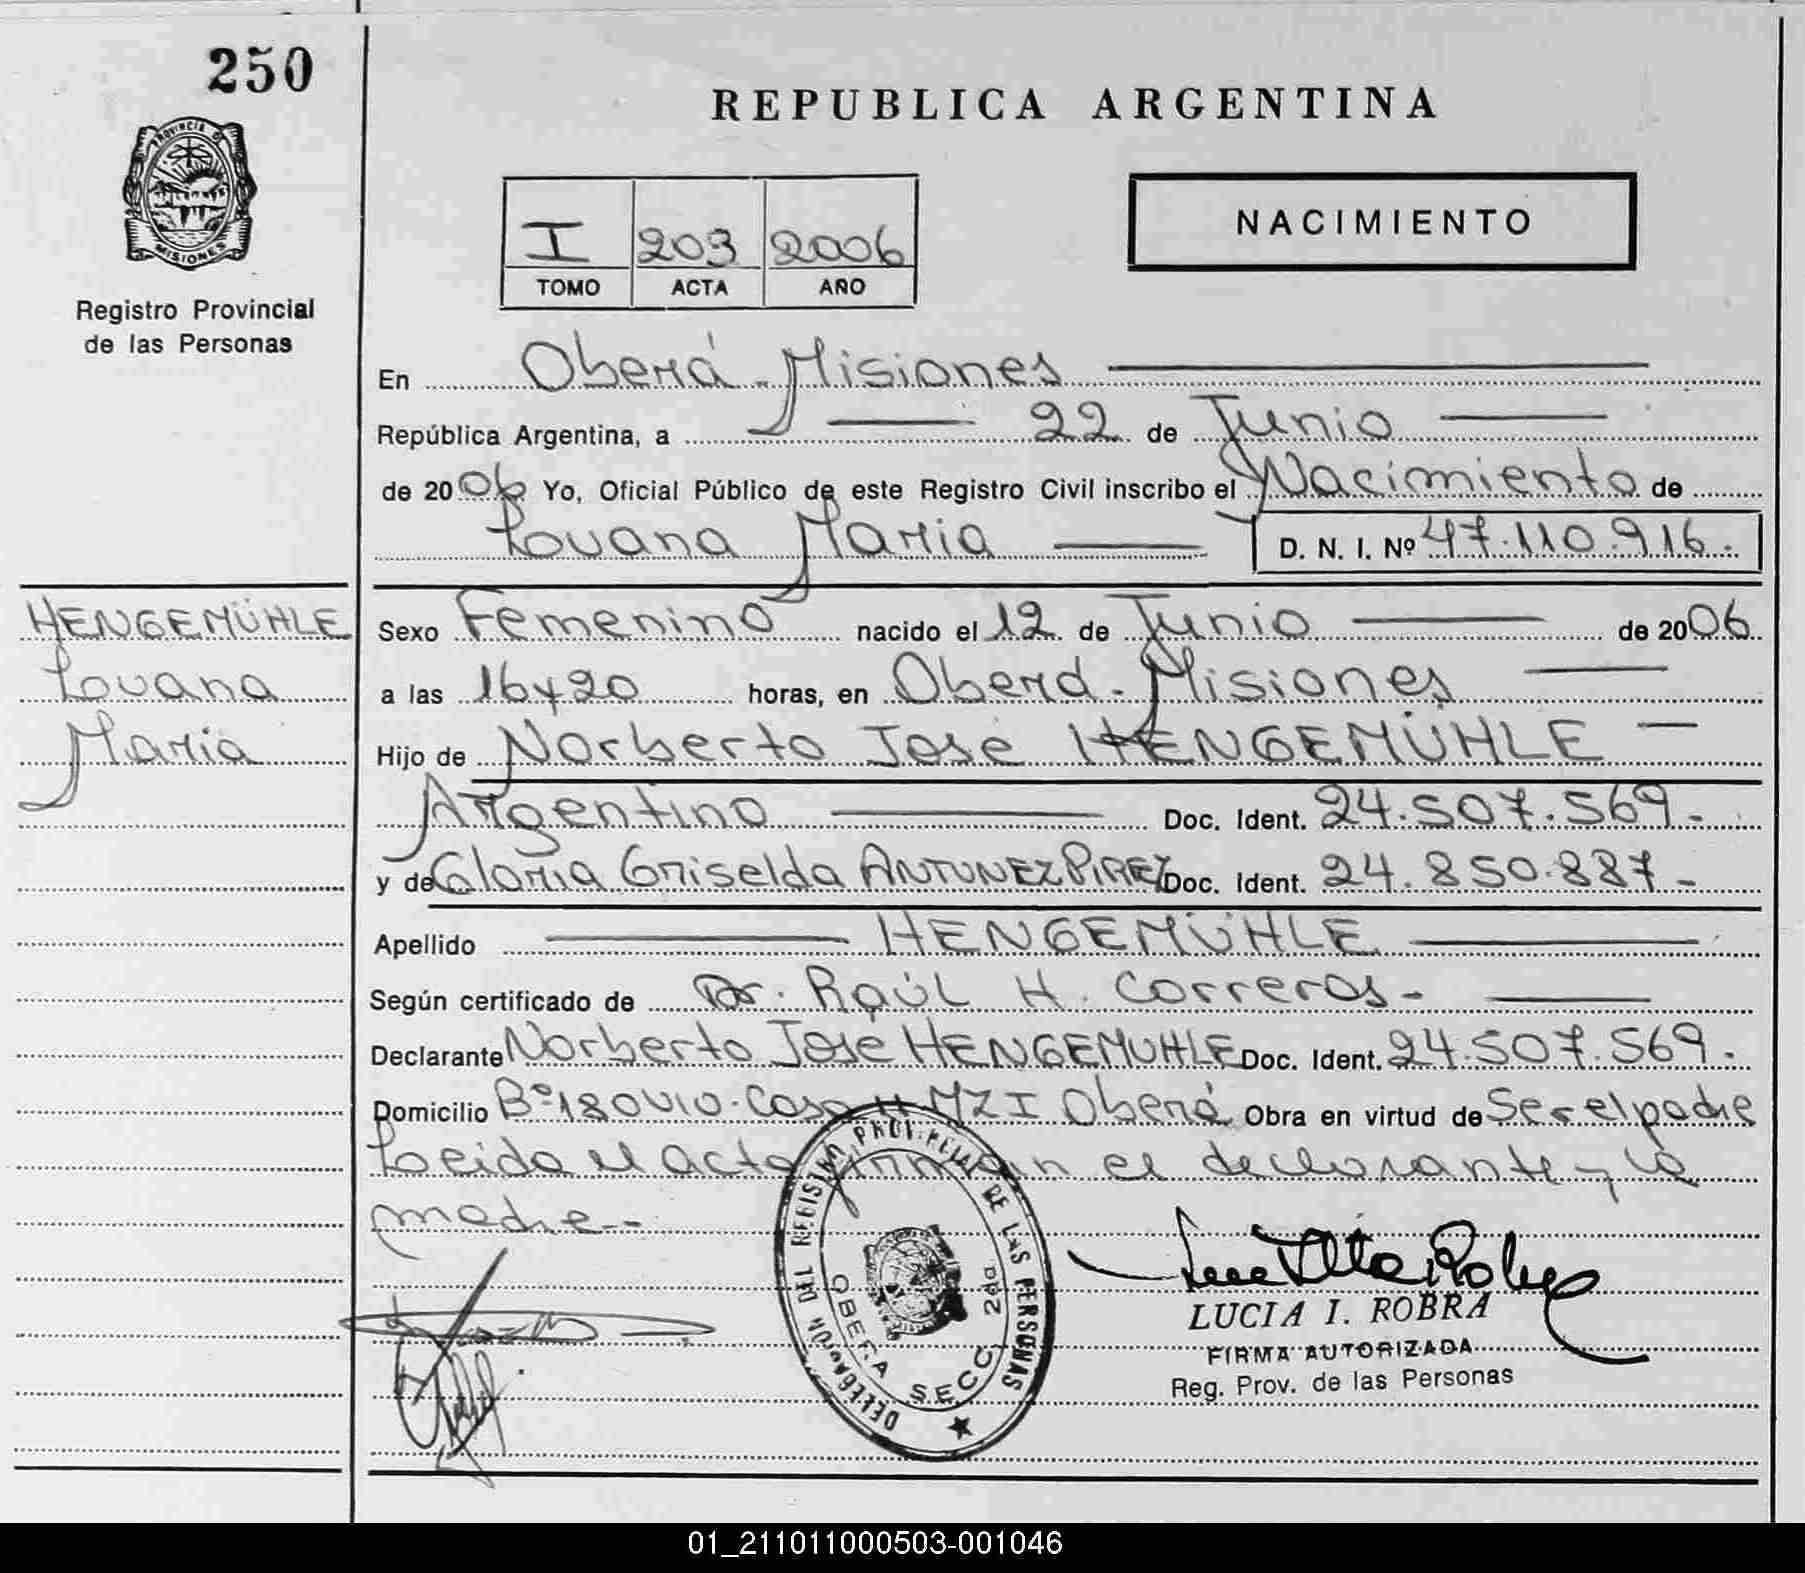 250
PROVINCIA DE
MISIONES
Registro Provincial
de las Personas
REPUBLICA ARGENTINA
I 203 2006
TOMO ACTA AÑO
NACIMIENTO
En Oberá - Misiones
República Argentina, a 22 de Junio
de 2006 Yo, Oficial Público de este Registro Civil inscribo el Nacimiento de
Louana Maria D. N. I. Nº 47.110.916.
HENGEMÜHLE
Louana
Maria
Sexo Femenino nacido el 12 de Junio de 2006
a las 16y20 horas, en Oberá - Misiones
Hijo de Norberto José HENGEMÜHLE
Argentino Doc. Ident. 24.507.569.-
y de Gloria Griselda ANTUNEZ PIREZ Doc. Ident. 24.850.887-
Apellido HENGEMÜHLE
Según certificado de Dr. Raúl H. Correras-
Declarante Norberto José HENGEMUHLE Doc. Ident. 24.507.569.-
Domicilio Bº 180 Viv. Casa 11 MZ I Oberá Obra en virtud de Ser el padre
Leida el acta firman el declarante y la
madre.-
DELEGACIÓN DEL REGISTRO PROVINCIAL DE LAS PERSONAS
OBERA SECC 2da
LUCIA I. ROBRA
FIRMA AUTORIZADA
Reg. Prov. de las Personas
01_211011000503-001046